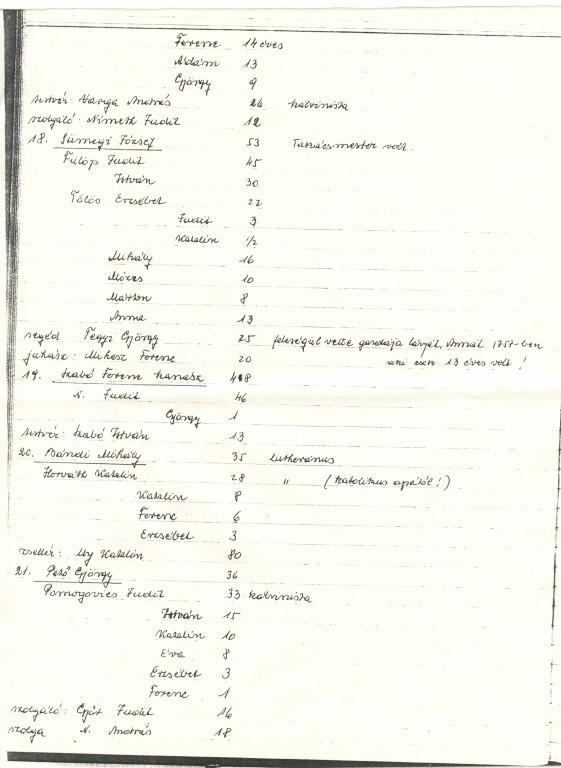 Ferenc 14 éves
Ádám 13
György 9
testvér: Varga András 26 kálvinista
szolgáló: Németh Judit 12
18. Sümegi József 53 Takácsmester volt.
Fülöp Judit 45
István 30
Tölös Erzsébet 22
Judit 3
Katalin 1/2
Mihály 16
Mózes 10
Márton 8
Anna 13
segéd Fegyr György 25 feleségül vette gazdája lányát, Annát 1757-ben
juhász: Mikosz Ferenc 20 aki csak 13 éves volt!
19. Szabó Ferenc kanász 48
N. Judit 46
György 1
testvér: Szabó István 13
20. Bándi Mihály 35 lutheránus
Horváth Katalin 28 " (katolikus apától!)
Katalin 8
Ferenc 6
Erzsébet 3
zsellér: Katalin 80
21. Pető György 36
Pomogovics Judit 33 kálvinista
István 15
Katalin 10
Éva 8
Erzsébet 3
Ferenc 1
szolgáló: Judit 16
szolga N. András 18